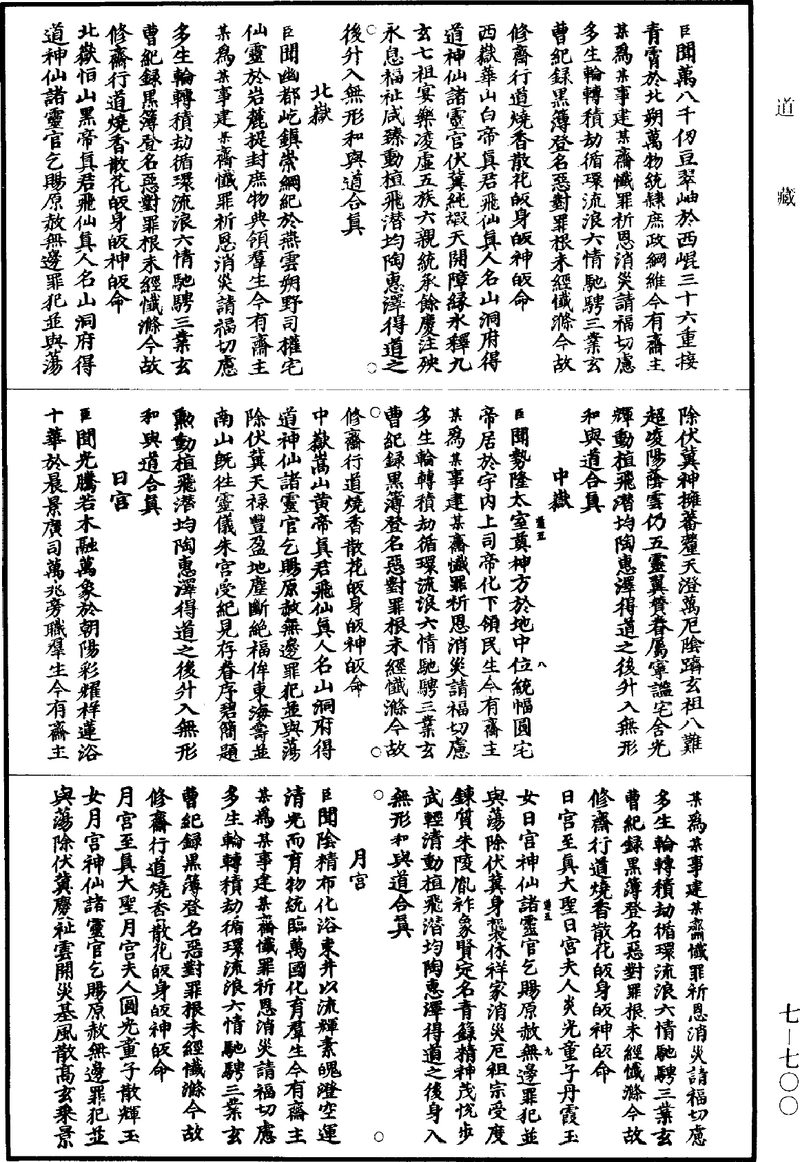 道藏
臣聞萬八千仞亘翠岫於西崐三十六重接
青霄於北朔萬物統隸庶政綱維今有齋主
某爲某事建某齋懺罪祈恩消災請福切慮
多生輪轉積劫循環流浪六情馳騁三業玄
曹紀録黑簿登名惡對罪根未經懺滌今故
修齋行道燒香散花皈身皈神皈命
西嶽華山白帝真君飛仙真人名山洞府得
道神仙諸靈官伏冀純嘏天開障緣冰釋九
玄七祖宴樂淩虛五族六親統承餘慶注殃
永息福祉咸臻動植飛潛均陶惠澤得道之
後升入無形和與道合真
北嶽
臣聞幽都屹鎮崇綱紀於燕雲朔野司權宅
仙靈於岩麓提封庶物典領羣生今有齋主
某爲某事建某齋懺罪祈恩消災請福切慮
多生輪轉積劫循環流浪六情馳騁三業玄
曹紀録黑簿登名惡對罪根未經懺滌今故
修齋行道燒香散花皈身皈神皈命
北嶽恒山黑帝真君飛仙真人名山洞府得
道神仙諸靈官乞賜原赦無邊罪犯並與蕩
除伏冀神擁蕃釐天澄萬厄陰躋玄祖八難
超淩陽隂雲仍五靈翼贊眷屬寧謐宅舍光
輝動植飛潛均陶惠澤得道之後升入無形
和與道合真
中嶽
臣聞勢隆太室奠神方於地中位統幅圓宅
帝居於宇内上司帝化下領民生今有齋主
某爲某事建某齋懺罪祈恩消災請福切慮
多生輪轉積劫循環流浪六情馳騁三業玄
曹紀録黑簿登名惡對罪根未經懺滌今故
修齋行道燒香散花皈身皈神皈命
中嶽嵩山黄帝真君飛仙真人名山洞府得
道神仙諸靈官乞賜原赦無邊罪犯並與蕩
除伏冀天禄豐盈地塵斷絶福侔東海壽並
南山旣往靈儀朱宫受紀見存眷序碧簡題
勲動植飛潛均陶惠澤得道之後升入無形
和與道合真
日宫
臣聞光騰若木融萬象於朝陽彩耀祥蓮浴
十華於晨景廣司萬兆旁職羣生今有齋主
某爲某事建某齋懺罪祈恩消災請福切慮
多生輪轉積劫循環流浪六情馳騁三業玄
曹紀録黑簿登名惡對罪根未經懺滌今故
修齋行道燒香散花皈身皈神皈命
日宫至真大聖日宫夫人炎光童子丹霞玉
女日宫神仙諸靈官乞賜原赦無邊罪犯並
與蕩除伏冀身襲休祥家消災厄祖宗受度
錬質朱陵胤祚象賢定名青籙精神茂悦步
武輕清動植飛潛均陶惠澤得道之後身入
無形和與道合真
月宫
臣聞陰精布化浴東井以流輝素魄澄空運
清光而育物統臨萬國化育羣生今有齋主
某爲某事建某齋懺罪祈恩消災請福切慮
多生輪轉積劫循環流浪六情馳騁三業玄
曹紀録黑簿登名惡對罪根未經懺滌今故
修齋行道燒香散花皈身皈神皈命
月宫至真大聖月宫夫人圓光童子散輝玉
女月宫神仙諸靈官乞賜原赦無邊罪犯並
與蕩除伏冀慶祉雲開災基風散高玄乘景
七—七〇〇